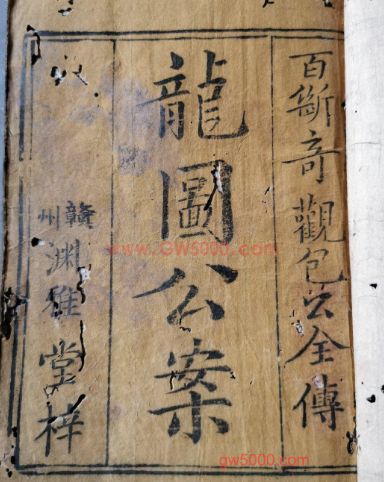 百斷奇觀包公全傳
龍圖公案
贛州淵雅堂梓
www.GW5000.com
gw5000.com